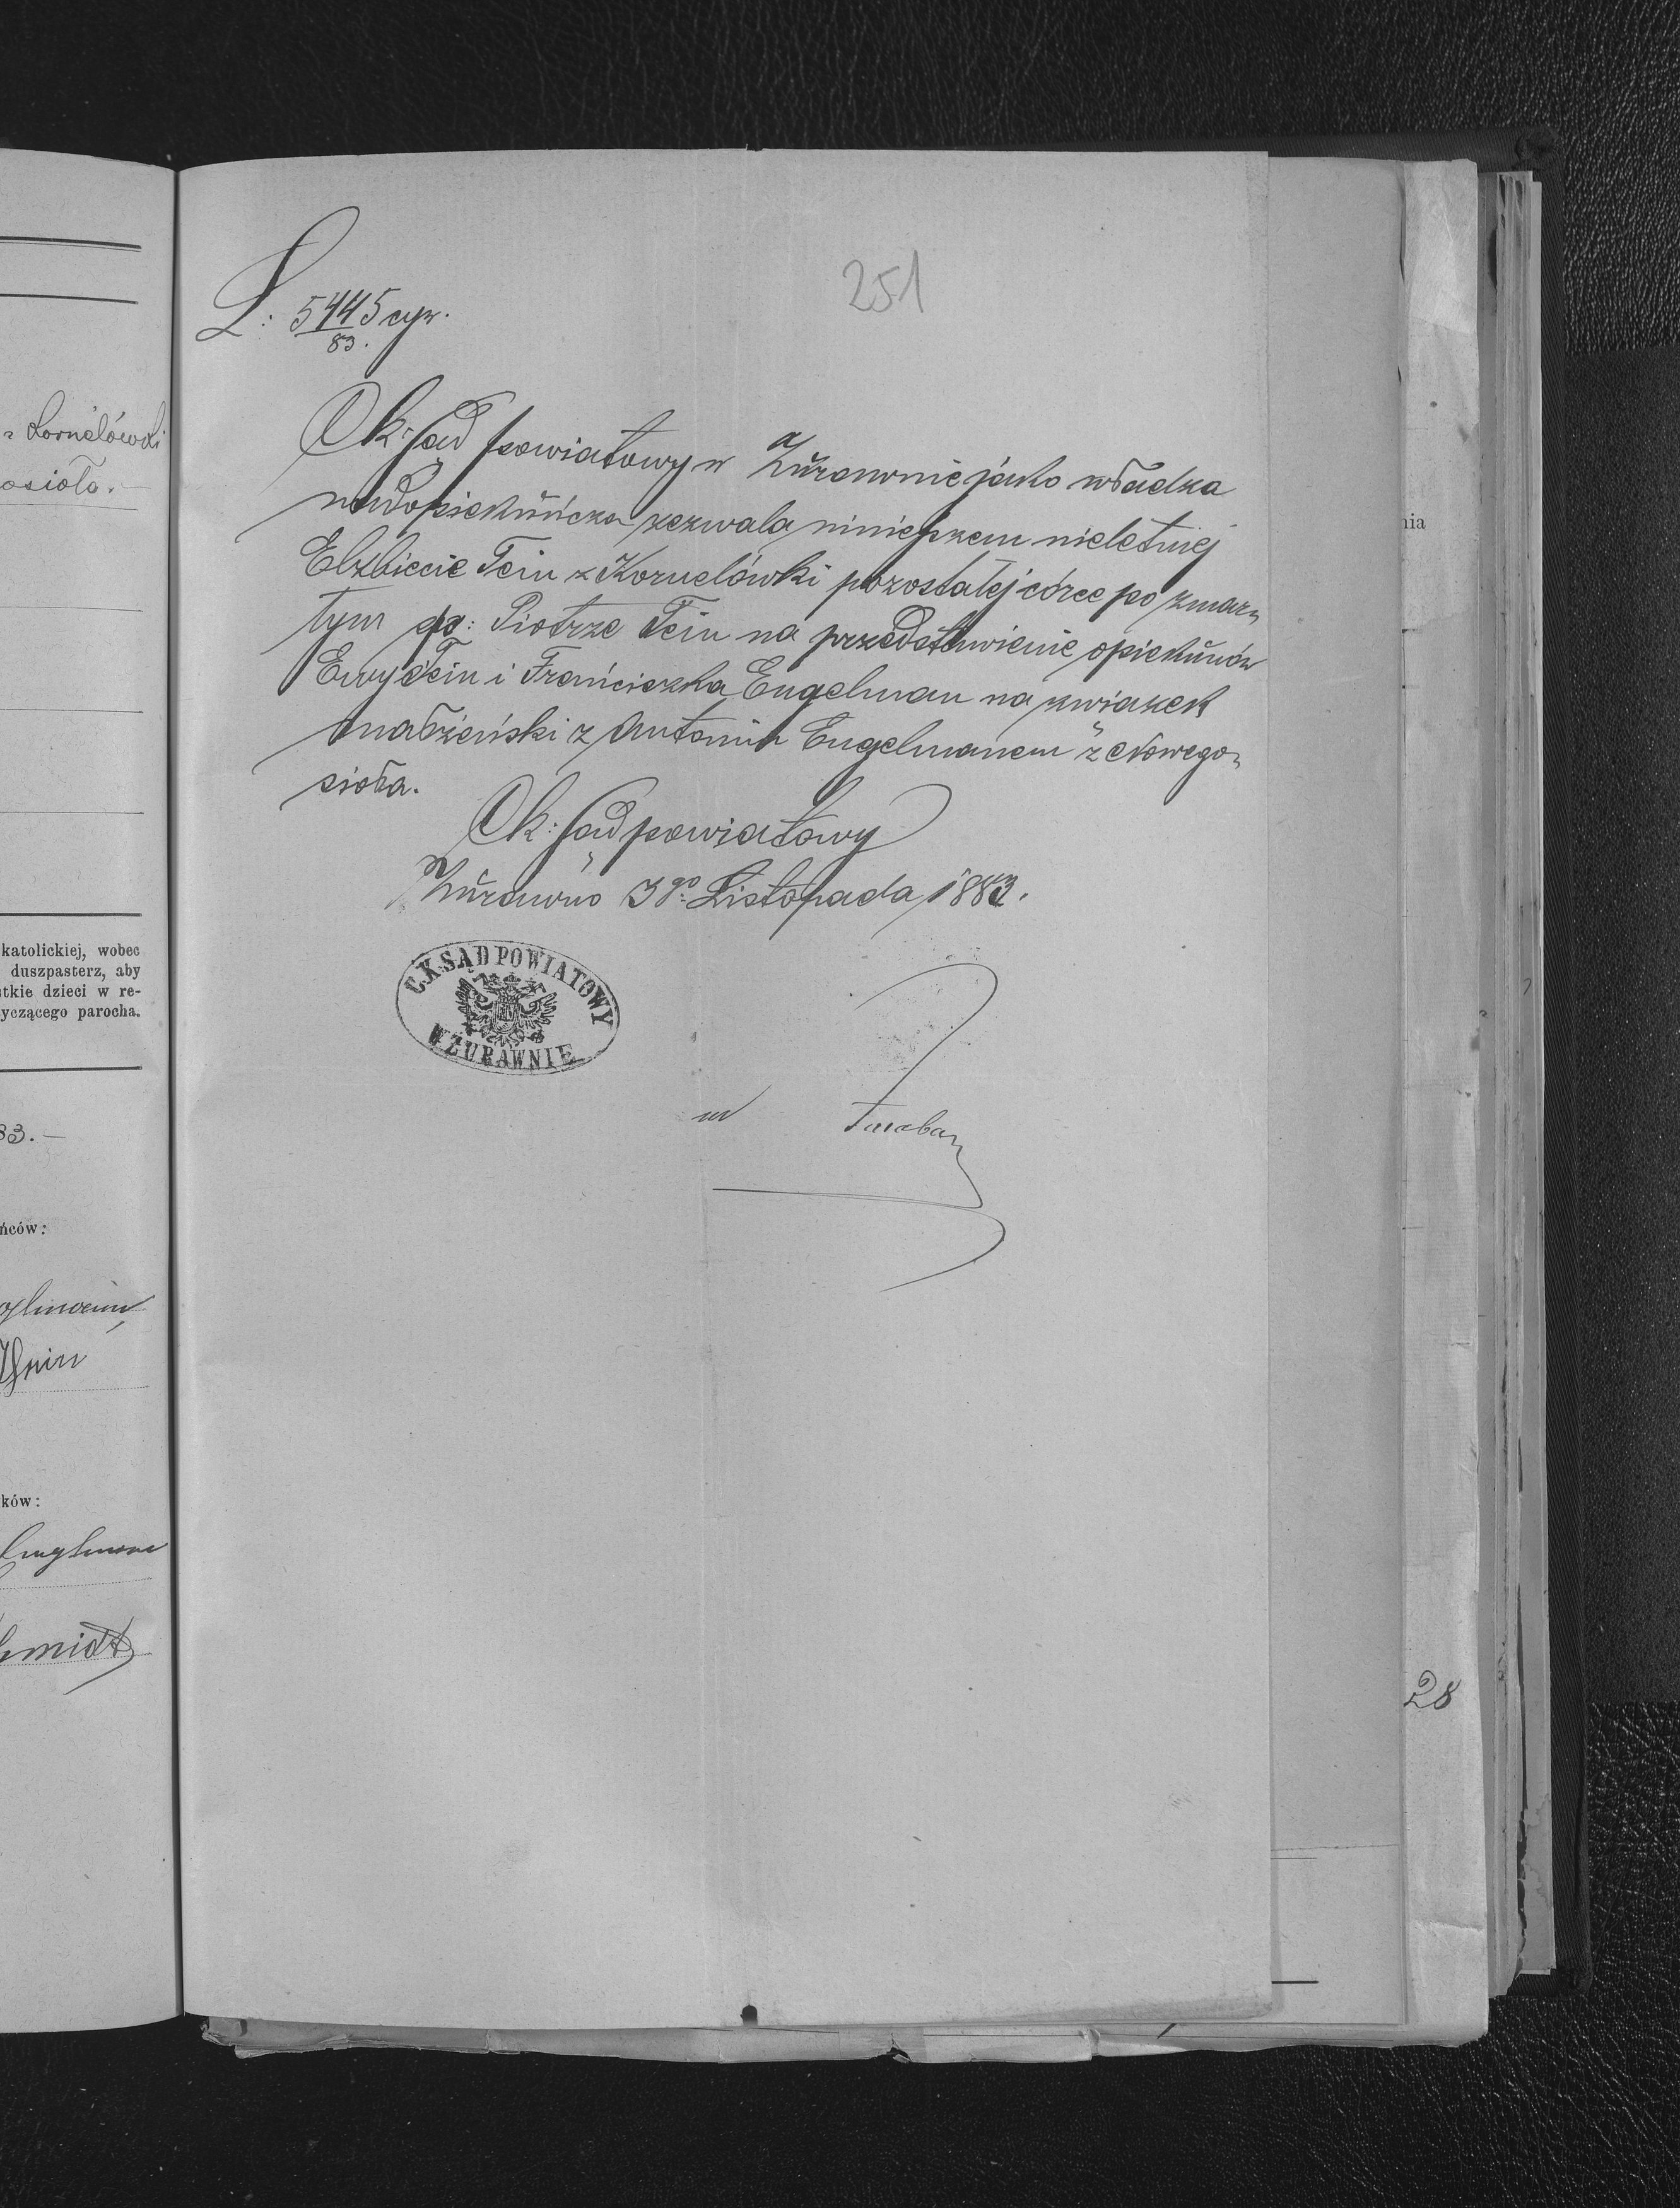 Kornelówki
osioła.
katolickiej, wobec
duszpasterz, aby
stkie dzieci w re-
yczącego parocha.
83.
ńców:
ków:
hmidt
251
L: 5445 cyw.
83.
Ck: Sąd powiatowy w Żurawnie jako władza
nadopiekuńcza zezwala niniejszem nieletniej
Elżbiecie Tein z Kornelówki pozostałej córce po zmar„
tym gp: Piotrze Tein na przedstawienie opiekunów
Ewy Tein i Franciszka Engelman na związek
małżeński z Antonim Engelmanem z Nowego„
sioła.
Ck: Sąd powiatowy
Żurawno 3go Listopada 1883.
C.K. SĄD POWIATOWY
W ŻURAWNIE
nia
28